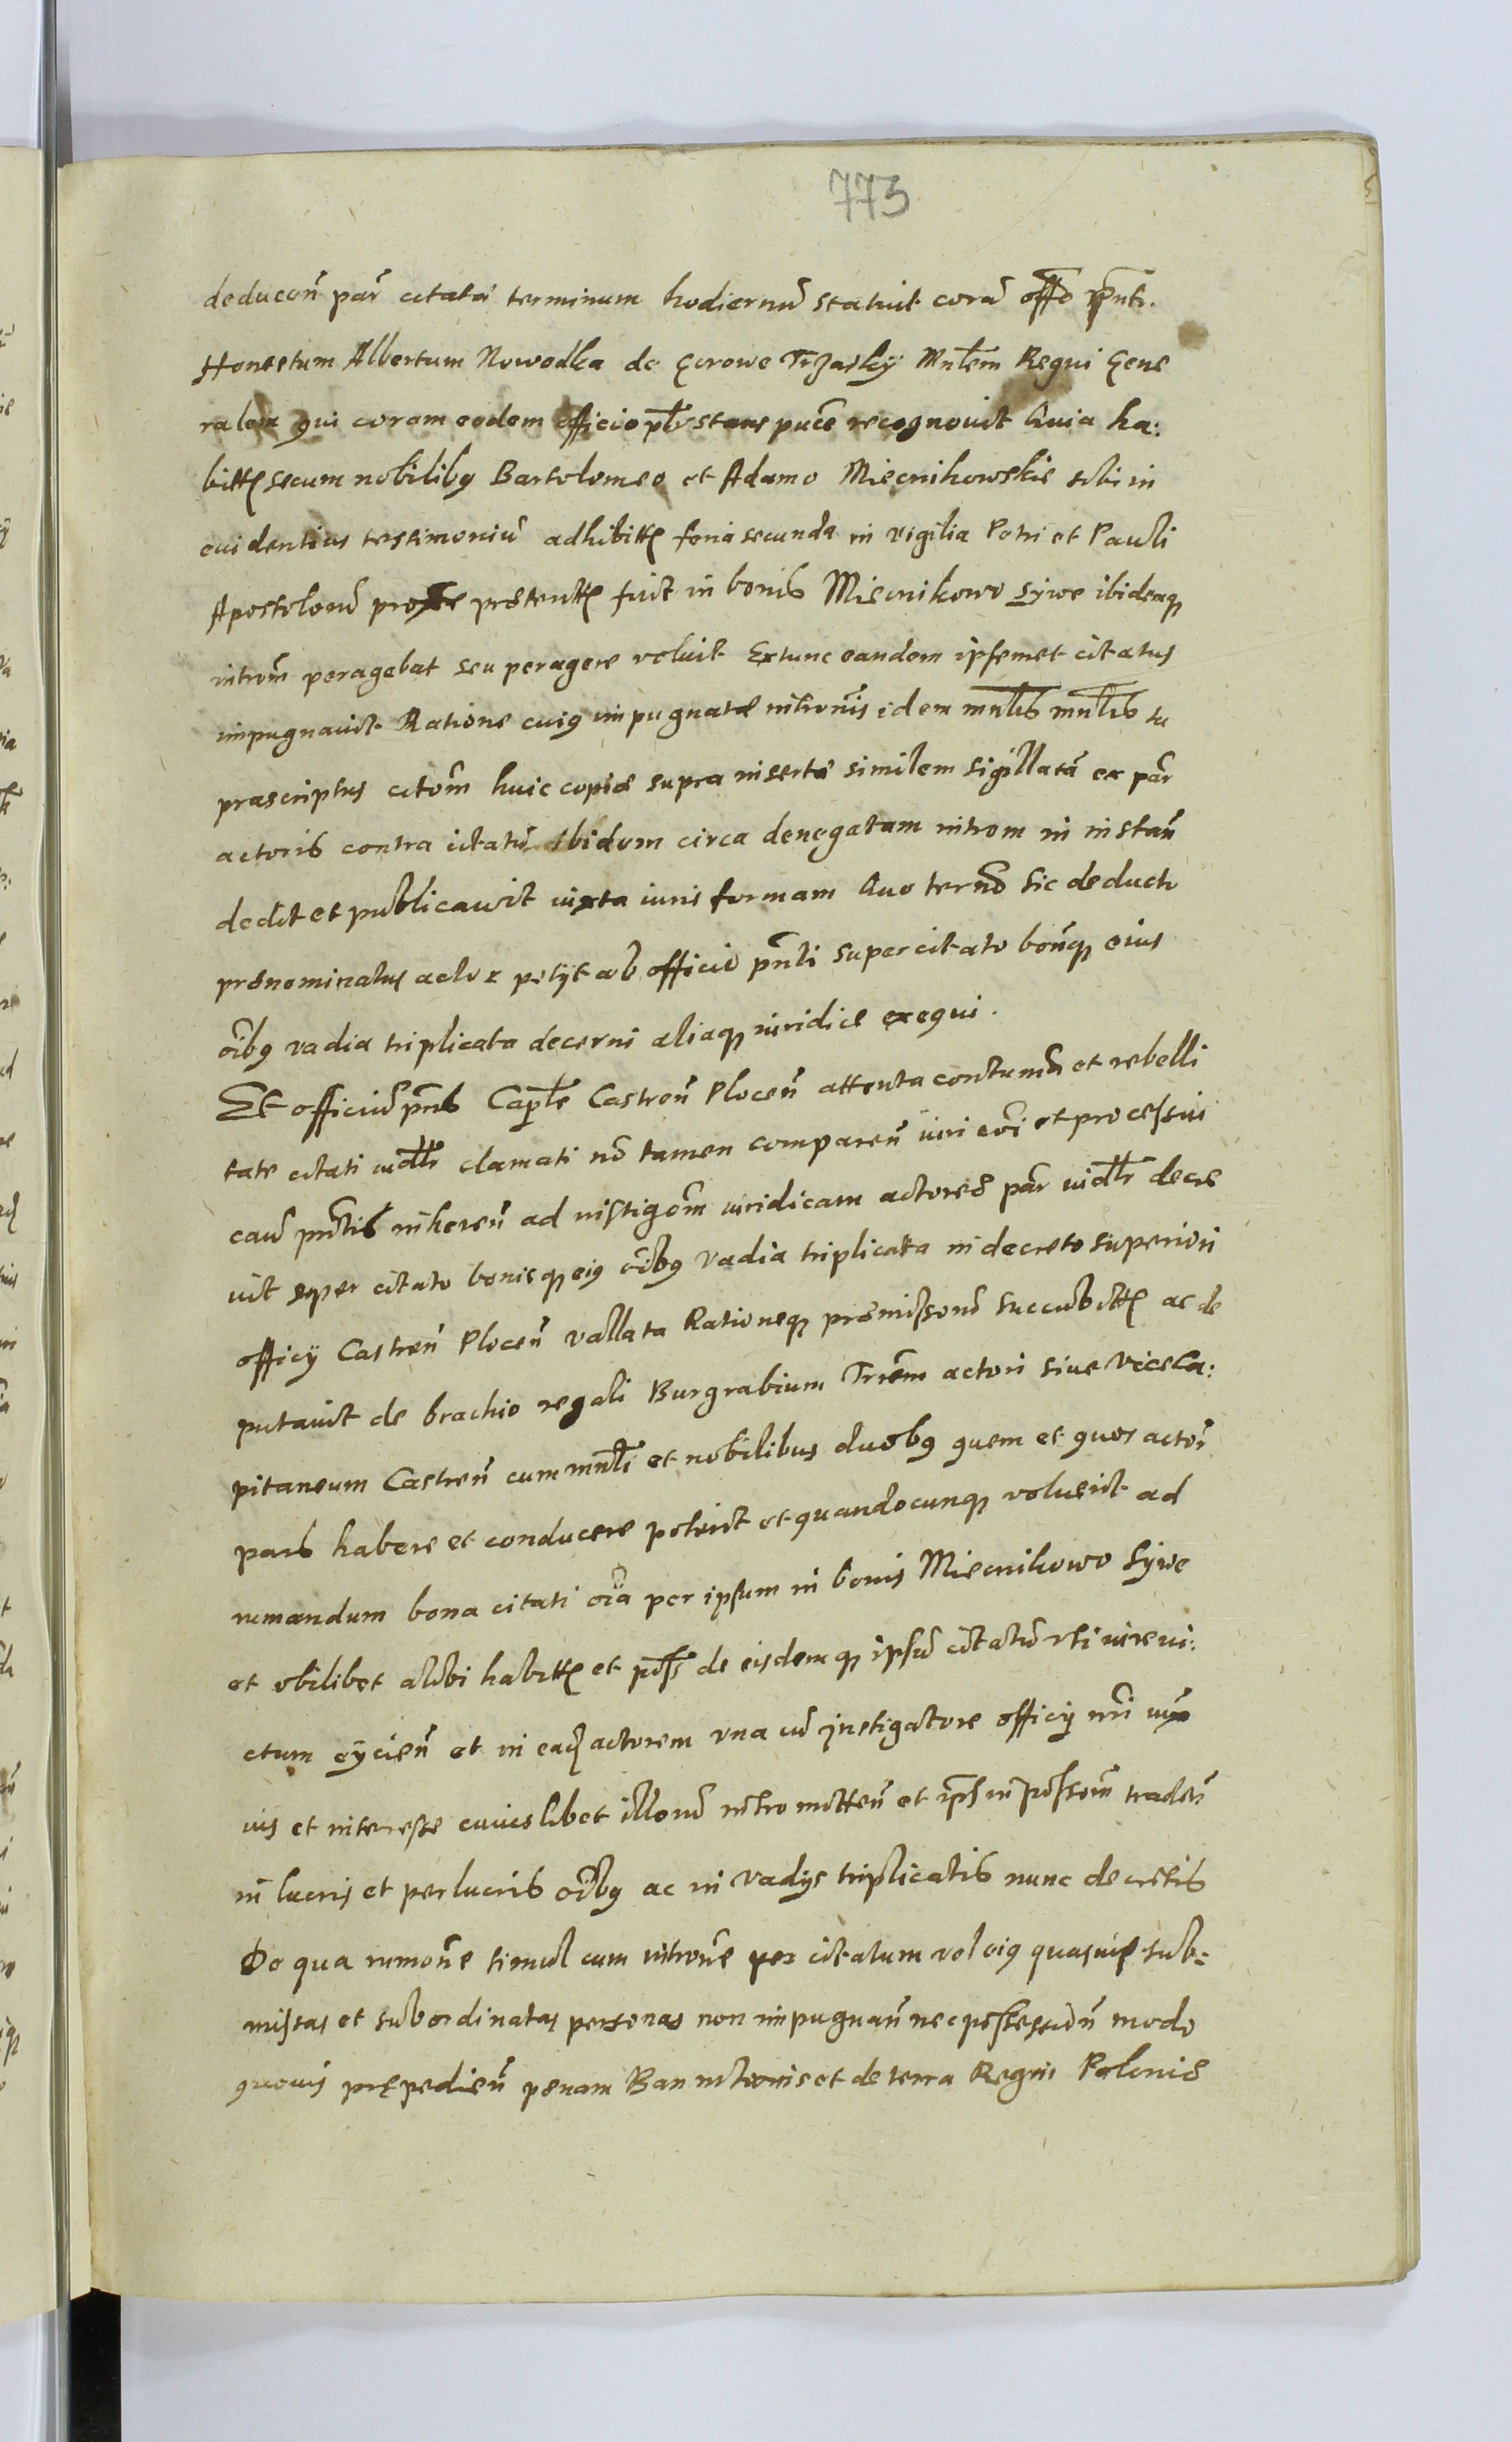 773
deducen̄ par̄ citatæ terminum hodiernū statuit corā offō pn̄ti.
Honestum Albertum Nowodka de Gorowo Trzaski Mnl̄em Regni Gene
ralem qui coram eodem officio pl̄r stans pucē recognovit Quia ha:
bitis secum nobilibus Bartolomeo et Adamo Miecnikowskie sibi in
euidentius testimoniū adhibitis feria secunda in vigilia Petri et Pauli
Apostolorū præteritis fuit in bonis Miecnikowo Sywe ibidemq
intrōm peragebat seu peragere voluit Extunc eandem ipsemet citatus
impugnauit Ratione cuius impugnatæ intromīs idem mnl̄is
præscriptus citōm huic copiæ supra insertæ similem sigillatā ex par̄
actoris contra citatū ibidem circa denegatam intrōm in instan̄
dedit et publicauit iuxta iuris formam Quo tern̄o sic deducto
prænominatus actor petyt ab officio pn̄ti super citato bonisq eius
oībus vadia triplicata decerni aliaq iuridice exequi.
Et officiū pn̄s Capl̄e Castren̄ Plocen̄ attenta contumā et rebelli
tate citati mdl̄r clamati nō tamen comparen̄ iuri eoī et processui
caū pn̄tis inheren̄ ad instigōm iuridicam actoreæ par̄ mdl̄r decre
uit super citato bonisq eius oībus vadia triplicata in decreto superiori
officy Castren̄ Plocen̄ vallata Rationeq præmissorū succubitis ac de
putauit de brachio regali Burgrabium Trrēm actori siue Viceca:
pitaneum Castren̄ cum mnl̄i et nobilibus duobus quem et quos actor̄
pars habere et conducere poterit et quandocunq voluerit ad
rumandum bona citati oīa per ipsum in bonis Miecnikowo Sywe
et vbilibet alibi habitis et pōss de eisdemq ipsū citatū vti iure ui:
ctum eycien̄ et in eadē actorem vna cū instigatore officy nr̄i iux
uis et interesse cuiuslibet illorū intromitten̄ et ips in possōm traden̄
in lucris et perlucris oībus ac in vadys triplicatis nunc decretis
De qua rumōne simul cum intrōne per citatum vel eius quasuis sub:
missas et subordinatas personas non impugnan̄ nec possessiōn̄ modo
quouis prępedien̄ penam Bannitionis et de terra Regni Poloniæ